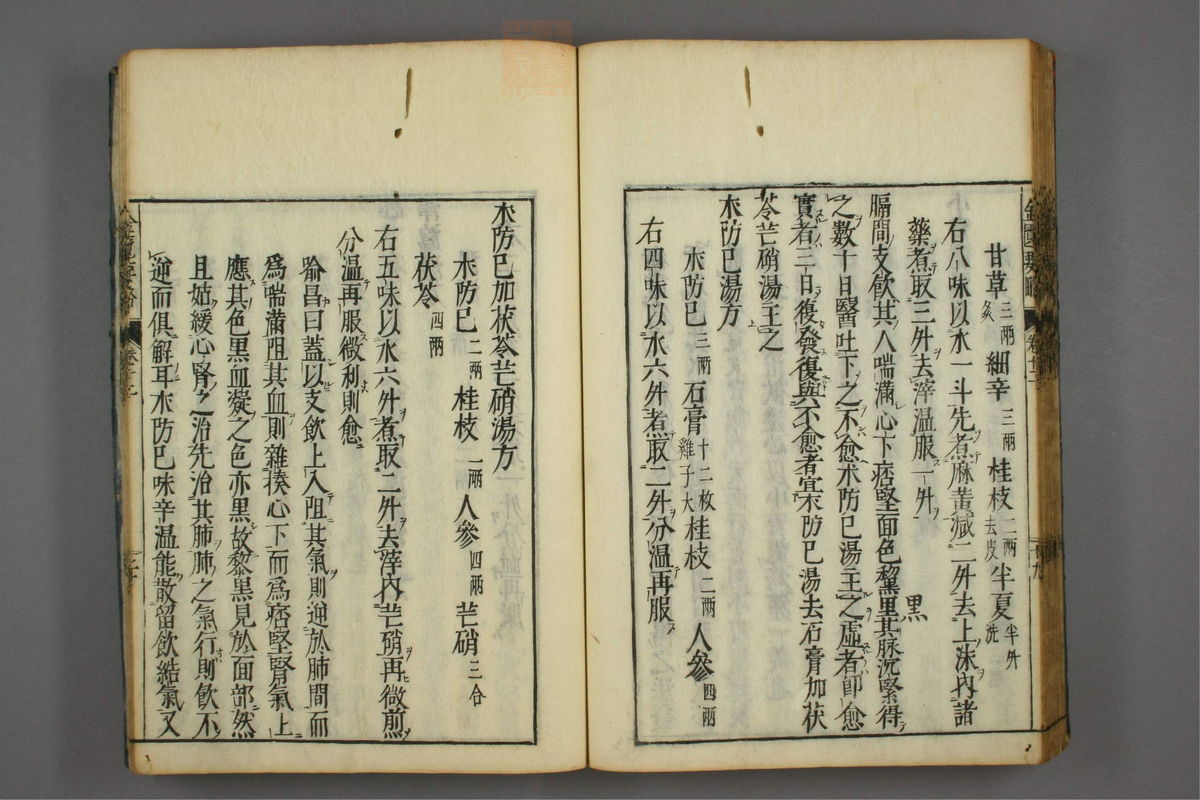 甘草三兩炙 細辛三兩 桂枝二兩去皮 半夏半升洗
右八味以水一斗先煮麻黃減二升去上沫內諸
藥煮取三升去滓溫服一升
膈間支飲其人喘滿心下痞堅面色黧黑其脉沉緊得
黑
之數十日醫吐下之不愈木防已湯主之虛者即愈
實者三日復發復與不愈者宜木防已湯去石膏加茯
苓芒硝湯主之
木防已湯方
木防已三兩 石膏十二枚雞子大 桂枝二兩 人參四兩
右四味以水六升煮取二升分溫再服
木防已加茯苓芒硝湯方
木防已二兩 桂枝二兩 人參四兩 芒硝三合
茯苓四兩
右五味以水六升煮取二升去滓內芒硝再微煎
分溫再服微利則愈
喻昌曰蓋以支飲上入阻其氣則逆於肺間而
為喘滿阻其血則雜揉心下而為痞堅腎氣上
應其色黑血凝之色亦黑故黧黑見於面部然
且姑緩心腎之治先治其肺肺之氣行則飲不
逆而俱解耳木防已味辛溫能散留飲結氣又